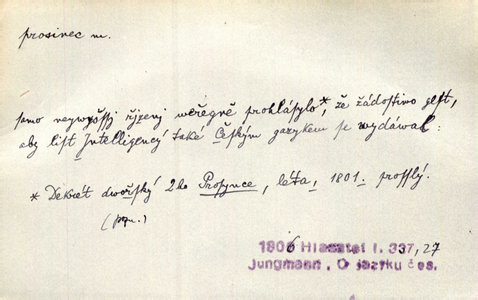 prosinec m.
samo neywyšssj řjzenj weřegně prohlásylo*, že žádostiwo gest,
aby list Intelligencý také Českým gazykem se wydáwal:
* Dekrét dworský 2ho Prosynce, léta, 1801. prosslý.
(pzn.)
1806 Hlasatel I. 337, 27
Jungmann, O jazyku čes.